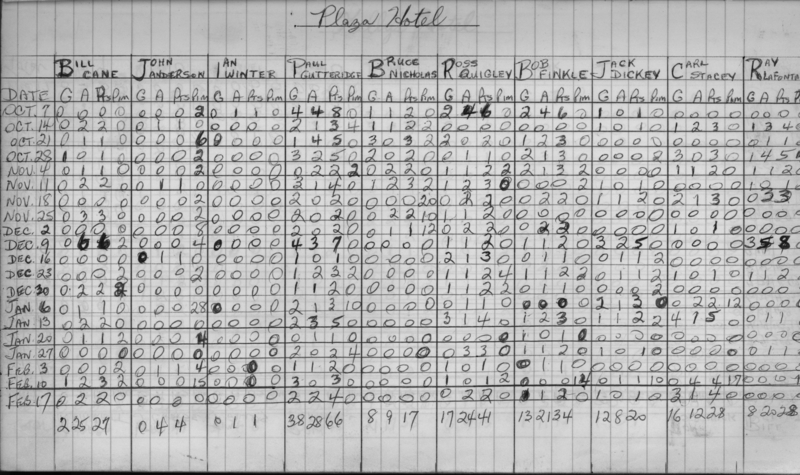 Plaza Hotel
BILL JOHN IAN PAUL BRUCE ROSS BOB JACK CARL RAY
CANE ANDERSON WINTER GUTTERIDGE NICHOLAS QUIGLEY FINKLE DICKEY STACEY
DATE G A Pts Pim G A Pts Pim G A Pts Pim G A Pts Pim G A Pts Pim G A Pts Pim G A Pts Pim G A Pts Pim G A Pts Pim G A Pts
OCT. 7 0 0 0 0 0 0 0 2 0 1 1 0 4 4 8 0 1 1 2 0 2 4 6 0 2 4 6 0 1 0 1 0 0 0 0 0
OCT. 14 0 2 2 0 0 1 1 0 0 0 0 0 2 1 3 4 1 1 2 2 0 0 0 0 0 0 0 0 1 0 1 0 1 2 3 0 1 3 4 0
OCT. 21 0 1 1 0 0 0 0 6 0 0 0 0 1 4 5 0 3 0 3 2 2 0 2 0 1 2 3 0 0 0 0 0 0 0 0 0 0 1 1
OCT. 28 1 0 1 0 0 0 0 2 0 0 0 0 3 2 5 0 2 0 2 0 0 1 1 0 2 1 3 0 0 0 0 2 3 0 3 0 1 4 5
NOV. 4 0 1 1 0 0 0 0 2 0 0 0 0 0 2 2 2 0 2 2 0 1 1 2 2 2 1 3 2 0 0 0 0 1 1 2 0 1 1 2
NOV. 11 0 2 2 0 0 1 1 0 0 0 0 0 3 1 4 0 1 2 3 2 1 2 3 0 0 0 0 2 1 0 1 0 0 0 0 0
NOV. 18 0 0 0 0 0 0 0 2 0 0 0 0 2 0 2 0 0 0 0 20 0 2 2 0 0 2 2 0 1 1 2 0 2 1 3 0
NOV. 25 0 3 3 0 0 0 0 2 0 0 0 0 2 0 2 0 0 2 2 10 1 1 2 0 0 0 0 0 0 0 0 0 0 0 0 0 0 0 0
DEC. 2 0 0 0 0 0 0 0 8 0 0 0 0 2 0 2 0 0 1 1 12 0 2 2 0 0 2 2 0 0 0 0 0 1 0 1 0 0 0 0
DEC. 9 0 6 6 2 0 0 0 4 0 0 0 0 4 3 7 0 0 0 0 0 1 1 2 0 1 1 2 0 3 2 5 0 0 0 0 0 3 5 8
DEC. 16 0 0 0 0 0 1 1 0 0 0 0 0 1 0 1 0 0 0 0 0 2 1 3 0 0 1 1 0 0 1 1 2 0 0 0 0 0 0 0
DEC. 23 0 0 0 2 0 0 0 2 0 0 0 0 1 2 3 2 0 0 0 0 1 1 2 4 1 1 2 2 0 1 1 2 1 0 1 0 1 1 2
DEC. 30 0 2 2 2 0 0 0 0 0 0 0 0 1 1 2 0 0 0 0 0 1 1 2 0 1 1 2 0 0 0 0 2 0 0 0 0 0 0 0
JAN. 6 0 1 1 0 0 0 0 28 0 0 0 0 2 1 3 10 0 0 0 0 0 1 1 0 0 0 0 0 2 1 3 0 0 2 2 12 0 0 0
JAN. 13 0 2 2 0 0 0 0 0 0 0 0 0 2 3 5 0 0 0 0 0 3 1 4 0 1 2 3 0 1 1 2 2 4 1 5 0 0 1 1
JAN. 20 0 1 1 2 0 0 0 4 0 0 0 0 0 1 1 0 0 0 0 0 0 0 0 0 1 0 1 0 0 0 0 0 0 0 0 0 0 0 0
JAN. 27 0 0 0 0 0 0 0 0 0 0 0 0 2 0 2 4 0 0 0 0 0 3 3 0 1 1 2 0 1 0 1 0 0 0 0 0 0 1 1
FEB. 3 0 0 0 2 0 1 1 4 0 0 0 0 1 1 2 0 0 0 0 0 1 0 1 2 0 1 1 0 0 0 0 0 0 0 0 0 0 0 0
FEB. 10 1 2 3 2 0 0 0 15 0 0 0 0 3 0 3 0 0 0 0 0 1 0 1 2 0 0 0 14 0 1 1 0 0 4 4 17 0 0 0
FEB. 17 0 2 2 0 0 0 0 0 0 0 0 0 2 2 4 0 0 0 0 0 0 2 2 0 1 1 2 0 1 0 1 0 3 1 4 0 0 0 0
2 25 27 0 4 4 0 1 1 38 28 66 8 9 17 17 24 41 13 21 34 12 8 20 16 12 28 8 20 28